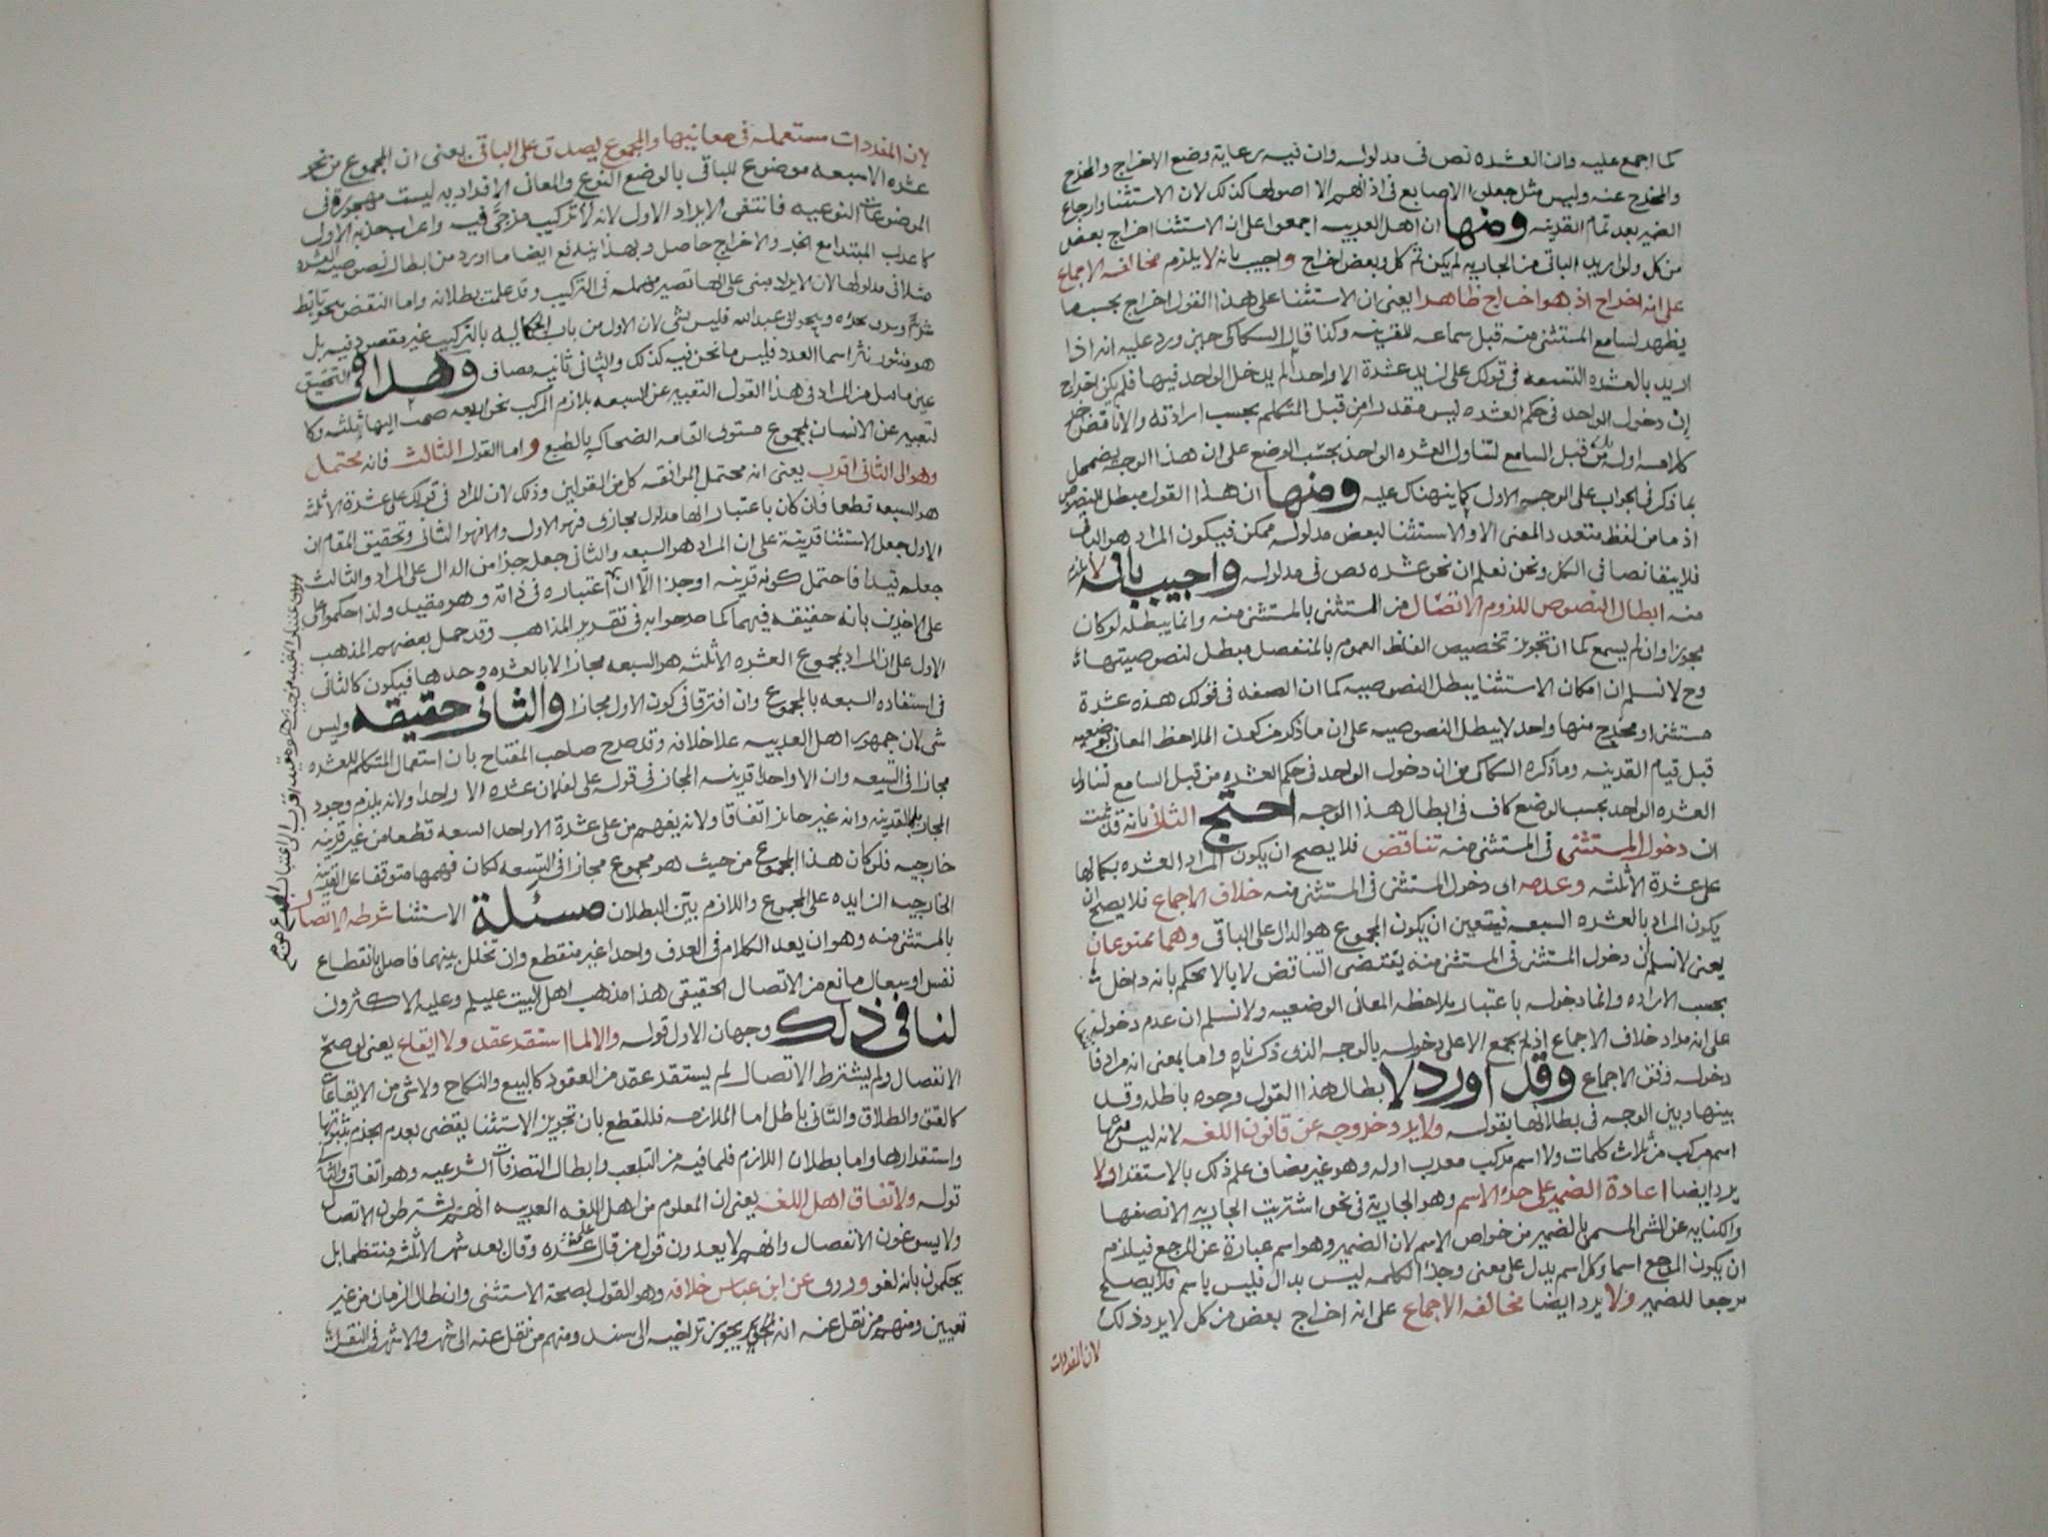 كما اجمع عليه وان العشره نص فى مدلوله وان فيه رعاية وضع الاخراج والمخرج
والمخرج عنه وليس مثل جعلوا الاصابع فى اذانهم الا اصولها كذلك لان الاستثنا وارجاع
الضمير بعد تمام القرينه ومنها ان اهل العربيه اجمعوا على ان الاستثنا اخراج بعض
من كل ولو اريد الباقى من الجاريه لم يكن ثم كل وبعض اخراج واجيب بانه لا يلزم مخالفه الاجماع
على انه اخراج اذ هو اخراج ظاهرا يعنى ان الاستثنا على هذا القول اخراج بحسب ما
يظهر لسامع المستثنى منه قبل سماعه للقرينه وكذا قال السكاكى حين ورد عليه انه اذا
اريد بالعشره التسعه فى قولك على لزيد عشرة الا واحدا لم يدخل الواحد فيها فلم يكن اخراج
ان دخول الواحد فى حكم العشره ليس مقدرا من قبل المتكلم بحسب ارادته والا ناقض
كلامه اوله بل من قبل السامع لتناول العشره الواحد بحسب الوضع على ان هذا الوجه يضمحل
بما ذكر فى الجواب على الوجه الاول كما ينهناك عليه ومنها ان هذا القول مبطل للنصوص
اذ ما من لفظ متعدد المعنى الا والاستثنا لبعض مدلوله ممكن فيكون المراد هو الباقى
فلا يبقا نصا فى الكل ونحن نعلم ان نحو عشره نص فى مدلوله واجيب بانه لا يلزم
منه ابطال النصوص للزوم الاتصال من المستثنى بالمستثنى منه وانما يبطله لو كان
يجوز اوان لم يسمع كما ان تجويز تخصيص الفلظ العموم بالمنفصل مبطل لنصوصيتها
وح لا نسلم ان امكان الاستثنا يبطل النصوصيه كما ان الصفه فى قولك هذه عشرة
مستثنى او مخرج منها واحد لا يبطل النصوصيه على ان ما ذكر من كون الملاحظ المعانى الوضعيه
قبل قيام القرينه وما ذكره السكاكى من ان دخول الواحد فى حكم العشره من قبل السامع لتناول
العشره الواحد بحسب الوضع كاف فى ابطال هذا الوجه احتج الثانى بانه قد ثبت
ان دخول المستثنى فى المستثنى منه تناقض فلا يصح ان يكون المراد العشره بكمالها
على عشرة الا ثلثه وعدمه اى دخول المستثنى فى المستثنى منه خلاف الاجماع فلا يصح ان
يكون المراد بالعشره السبعه فيتعين ان يكون المجموع هو الدال على الباقى وهما ممنوعان
يعنى لا نسلم ان دخول المستثنى فى المستثنى منه يقتضى التناقض لا بالا يحكم بانه داخل
بحسب الاراده وانما دخوله باعتبار ملاحظه المعانى الوضعيه ولا نسلم ان عدم دخوله
على انه مراد خلاف الاجماع اذ لم يجمع الا على دخوله بالوجه الذى ذكرناه واما بمعنى انه مراد فا
دخوله وفق الاجماع وقد اورد لا بطال هذا القول وجوه باطله وقد
بينها وبين الوجه فى بطلانها بقوله ولا يرد خروجه عن قانون اللغه لانه ليس فيها
اسم مركب من ثلاث كلمات ولا اسم مركب معرب اوله وهو غير مضاف علم ذلك بالاستقرا ولا
يرد ايضا اعادة الضمير على جزء الاسم وهو الجاريه فى نحو اشتريت الجاريه الا نصفها
والكنايه عن الشى المسمى بالضمير من خواص الاسم لان الضمير وهو اسم عبارة عن المرجع فيلزم
ان يكون المرجع اسما وكل اسم يدل على معنى وجزء الكلمه ليس بدال فليس باسم فلا يصلح
مرجعا للضمير ولا يرد ايضا مخالفه الاجماع على انه اخراج بعض من كل لا يرد ذلك
لان المفردات
لان المفردات مستعمله فى معانيها والمجموع يصدق على الباقى يعنى ان المجموع من نحو
عشره الا سبعه موضوع للباقى بالوضع النوعى والمعانى الافراديه ليست مهجورة فى
الموضوعات النوعيه فانتفى الايراد الاول لانه لا تركيب مزجى فيه واعراب جزئه الاول
كاعراب المبتدا مع الخبر والاخراج حاصل وبهذا يندفع ايضا ما اورد من ابطال نصوصيه العشره
مثلا فى مدلولها لان الايراد مبنى على انها تصير مهمله فى التركيب وقد علمت بطلانه واما النقض بنحو تابط
شرا وبرق نحره وبنحو ابى عبد الله فليس بشى لان الاول من باب الحكايه بالتركيب غير مقصود فيه بل
هو منثور نثر اسما العدد فليس ما نحن فيه كذلك والثانى ثانيه مضاف وهذا فى التحقيق
عين ما مل من المراد فى هذا القول التعبير عن السبعه بلازم المركب نحو اربعه ضمت اليها ثلثه وكا
لتعبير عن الانسان بمجموع مستوى القامه الضحاك بالطبع واما القول الثالث فانه يحتمل
وهو الى الثانى اقرب يعنى انه محتمل لموافقه كل من القولين وذلك لان المراد فى قولك على عشرة الا ثلثه
هو السبعه قطعا فان كان باعتبار انها مدلول مجازى فهو الاول والا فهو الثانى وتحقيق المقام ان
الاول جعل الاستثنا قرينة على ان المراد هو السبعه والثانى جعله جزا من الدال على المراد والثالث
جعله قيدا فاحتمل كونه قرينه او جزا الا ان اعتباره فى ذاته وهو مقيد ولذا حكموا على
على الاخيرن بانه حقيقه فيهما كما صرحوا به فى تقرير المذاهب وقد حمل بعضهم المذهب
الاول على ان المراد بمجموع العشره الا ثلثه هو السبعه مجازا لا بالعشره وحدها فيكون كالثانى
فى استفاده السبعه بالمجموع وان افترقا فى كون الاول مجازا والثانى حقيقه وليس
شى لان جمهور اهل العربيه علا خلافه وقد صرح صاحب المفتاح بان استعمال المتكلم للعشره
مجازا فى التسعه وان الا واحدا قرينه المجاز فى قوله على لفلان عشره الا واحدا ولانه يلزم وجود
المجاز بلا قرينه وانه غير جائز اتفاقا ولانه يفهم من على عشرة الا واحد التسعه قطعا من غير قرينه
خارجيه فلو كان هذا المجموع من حيث هو مجموع مجازا فى التسعه لكان فهمها متوقفا على القرينه
الخارجيه الزايده على المجموع واللازم بين البطلان مسئلة الاستثنا شرطه الاتصال
بالمستثنى منه وهو ان يعد الكلام فى العرف واحدا غير منقطع وان تخلل بينهما فاصل بانقطاع
نفس او سعال مانع من الاتصال الحقيقى هذا مذهب اهل البيت عليلم وعليه الاكثرون
لنا فى ذلك وجهان الاول قوله والا لما استقر عقد ولا ايقاع يعنى لو صح
الانفصال ولم يشترط الاتصال لم يستقر عقد من العقود كالبيع والنكاح ولا شى من الايقاعات
كالعتق والطلاق والثانى باطل اما الملازمه فللقطع بان تجويز الاستثنا يقضى بعدم الجزم بثبوتها
واستقرارها واما بطلان اللازم فلما فيه من التلعب وابطال التصرفات الشرعيه وهو اتفاق والثانى
قوله ولا تفاق اهل اللغه يعنى ان المعلوم من اهل اللغه العربيه انهم يشترطون الاتصال
ولا يسوغون الانفصال وانهم لا يعدون قول من قال على عشره وقال بعد شهر الا ثلثه منتظما بل
يحكمون بانه لغو وروى عن ابن عباس خلافه وهو القول بصحة الاستثنى وان طال الزمان من غير
تعيين ومنهم من نقل عنه انه يجوز تراخيه الى سنه ومنهم من نقل عنه الى شهر والاشهر فى النقل